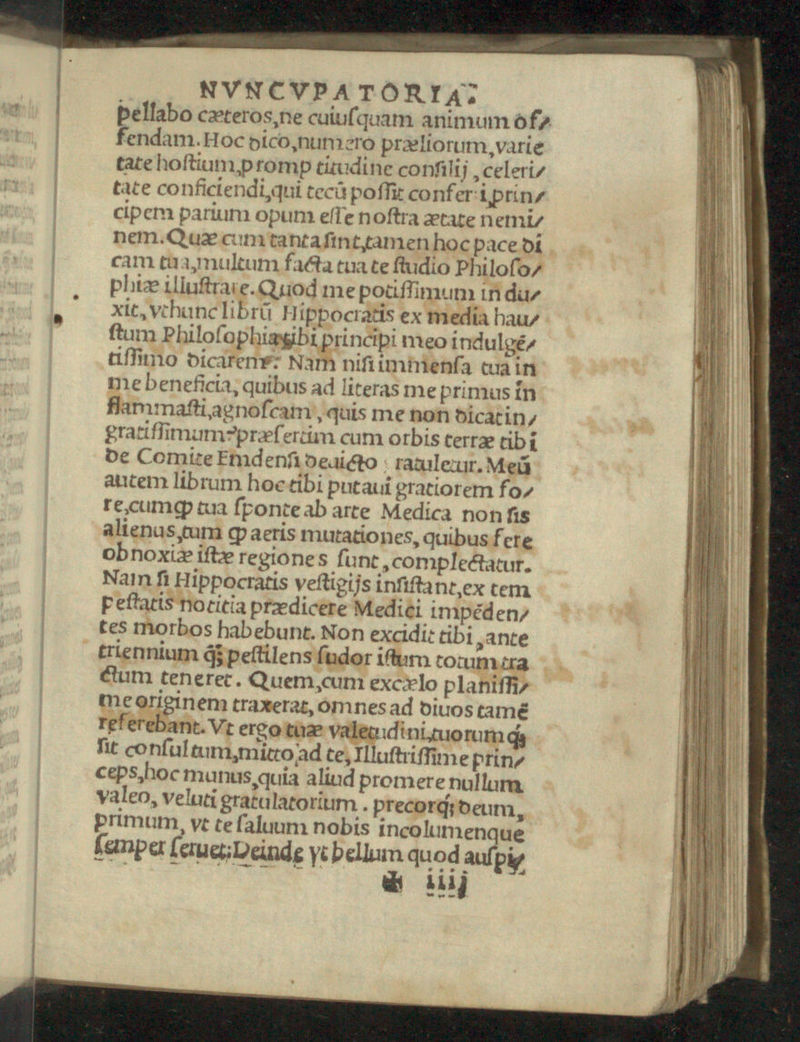 NVNCVPATORIA.
pellabo cæteros,ne cuiuſquam animum of⸗
fendam. Hoc dico,numero præliorum,varie
tate hoſtium,promptitudine conſilij ,celeri⸗
tate conficiendi,qui tecū poſſit conferri,prin⸗
cipem parium opum eſſe noſtra ætate nemi⸗
nem.Quæ cum tanta ſint,tamen hoc pace di
cam tua,multum facta tua te ſtudio Philoſo⸗
phiæ illuſtrare.Quod me potiſſimum in du⸗
xit,vt hunc librū Hippocratis ex media hau⸗
ſtum Philoſophia,tibi principi meo indulgē⸗
tiſſimo dicarem: Nam niſi immenſa tua in
me beneficia, quibus ad literas me primus in
flammaſti,agnoſcam , quis me non dicat in⸗
gratiſſimum?præſertim cum orbis terræ tibi
de Comite Emdenſi deuicto : ratuletur. Meū
autem librum hoc tibi putaui gratiorem fo⸗
re,cumꝙ tua ſponte ab arte Medica non ſis
alienus,tum ꝙ aeris mutationes, quibus fere
obnoxiæ iſtæ regiones ſunt ,complectatur.
Nam ſi Hippocratis veſtigijs inſiſtant,ex tem
peſtatis notitia prædicere Medici impēden⸗
tes morbos habebunt. Non excidit tibi ,ante
triennium ꝗ̃ peſtilens ſudor iſtum totum tra
ctum teneret. Quem,cum ex cælo planiſſi⸗
me originem traxerat, omnes ad diuos tamē
referebant. Vt ergo tuæ valetudini,tuorumꝗ;
ſit conſultum,mitto ad te, Illuſtriſſime prin⸗
ceps,hoc munus,quia aliud promere nullum
valeo, veluti gratulatorium . precorꝗ; deum,
primum, vt te ſaluum nobis incolumenque
ſemper ſeruet;Deinde vt bellum quod auſpi⸗
iiij